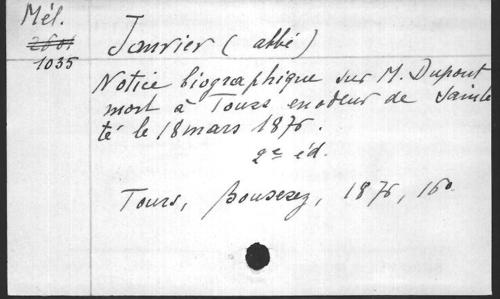 Mél.
2601
1035
Janvier (abbé)
Notice biographique sur M. Dupont
mort à Tours en odeur de sainte
té le 18 mars 1876.
2e éd.
Tours, Bouserez, 1876, 16o.